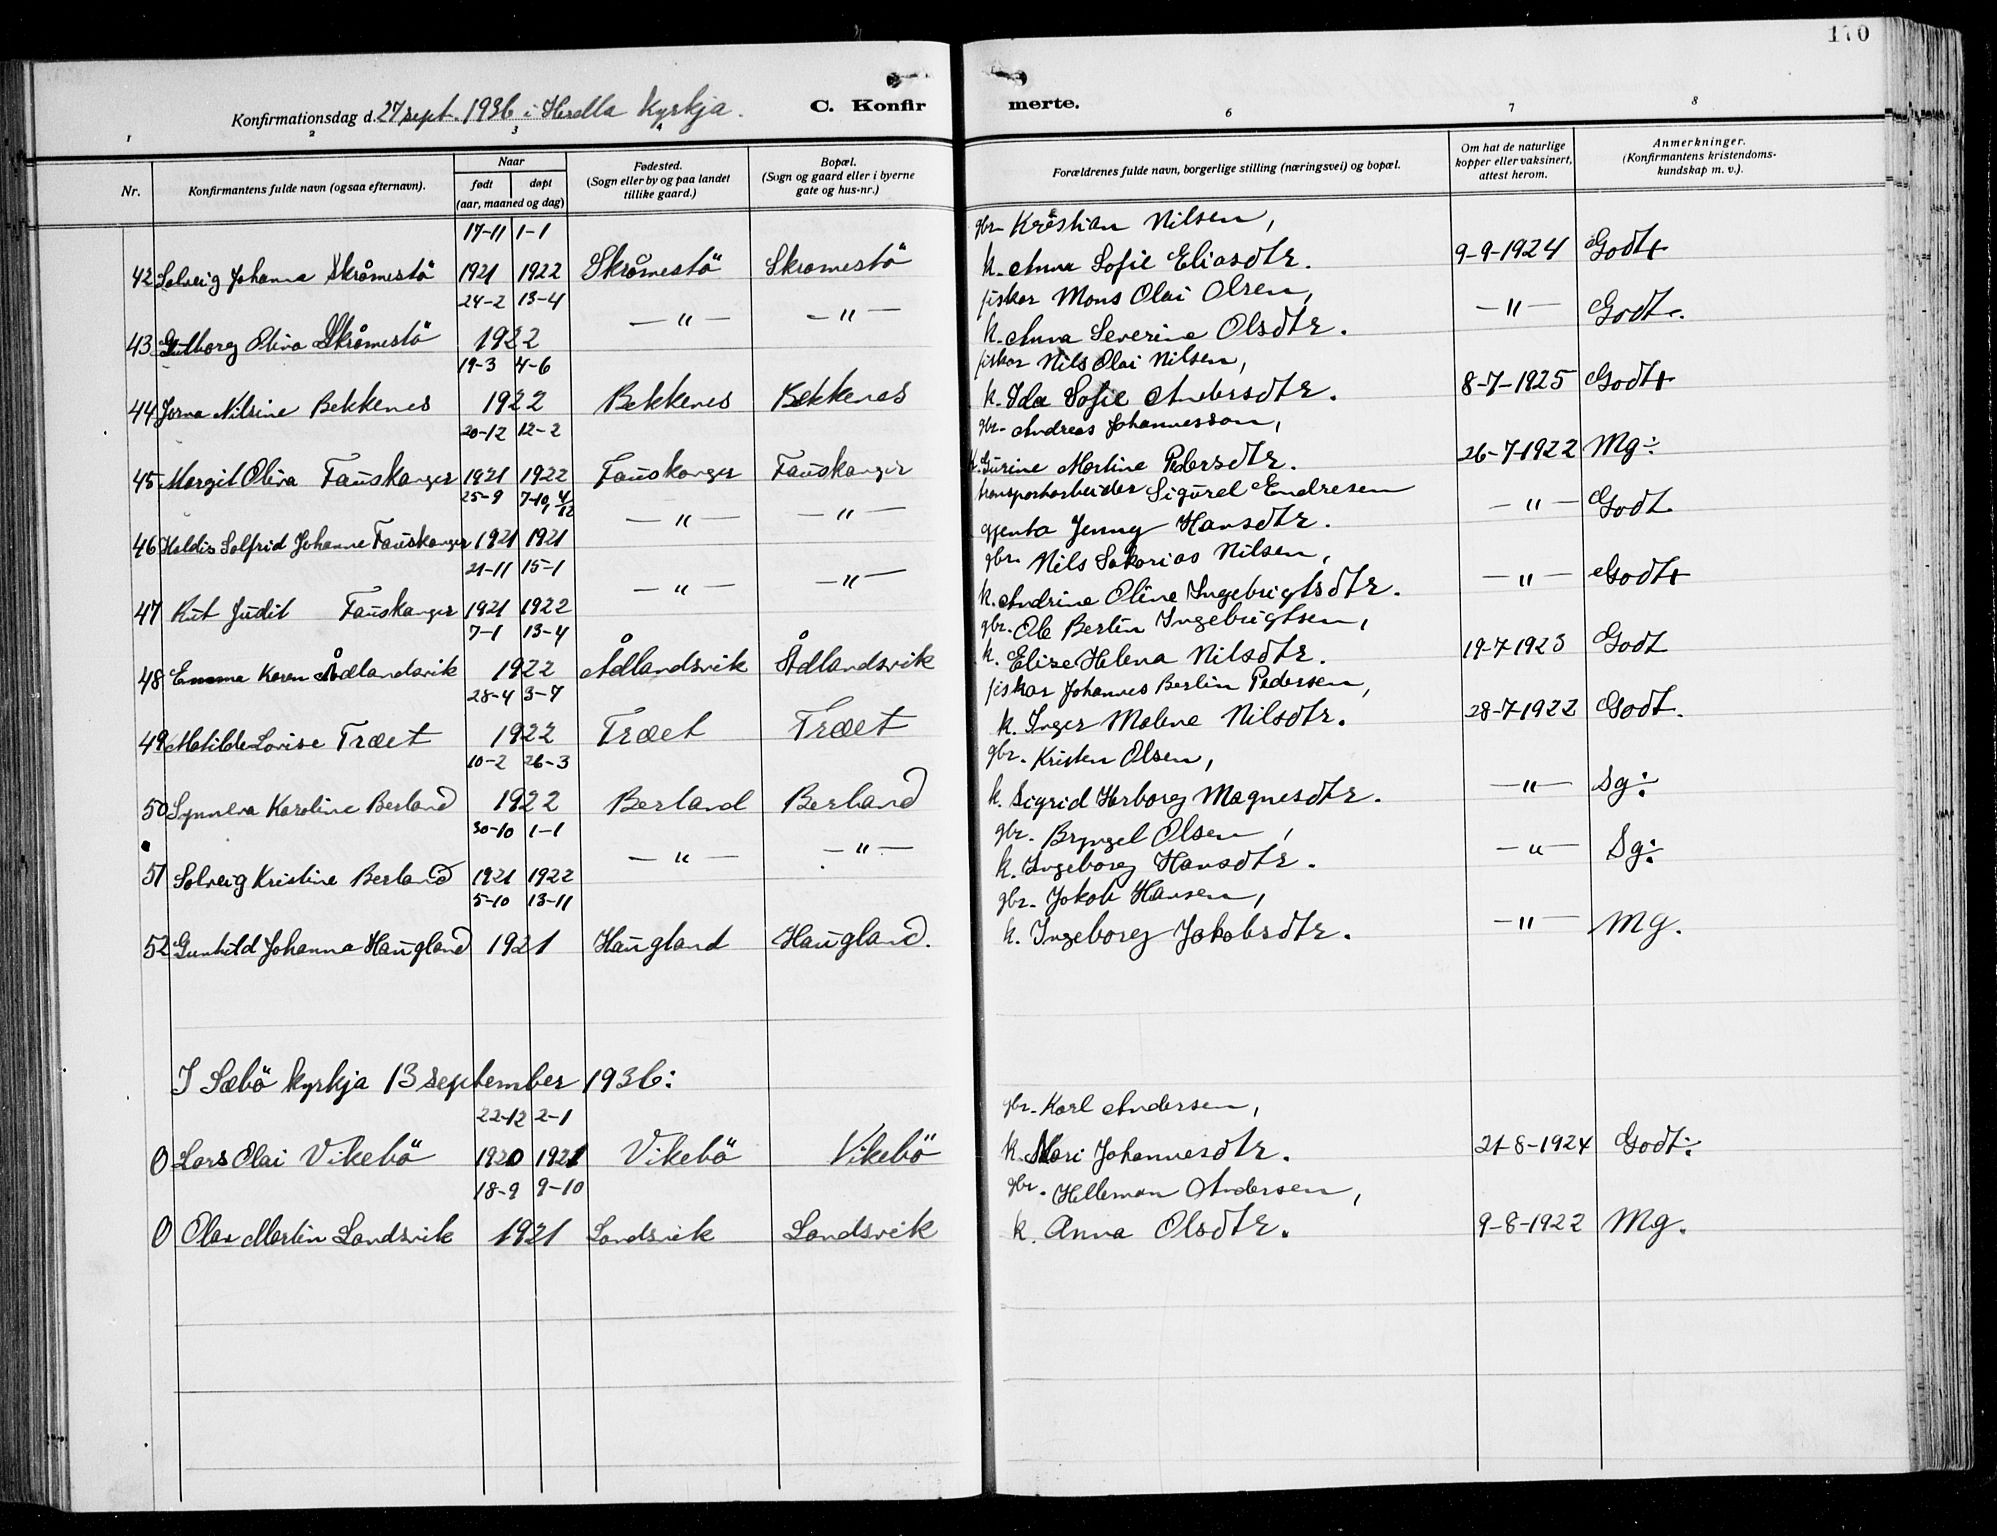 170
Konfirmationsdag d. 27 sept. 1936 i Herdla Kyrkja. C. Konfirmerte.
1 2 3 4 6 7 8
Nr. Konfirmantens fulde navn (ogsaa efternavn). Naar født døpt (aar, maaned og dag) Fødested. (Sogn eller by og paa landet tillike gaard.) Bopæl. (Sogn og gaard eller i byerne gate og hus-nr.) Forældrenes fulde navn, borgerlige stilling (næringsvei) og bopæl. Om hat de naturlige kopper eller vaksinert, attest herom. Anmerkninger. (Konfirmantens kristendomskundskap m. v.).
17-11 1-1 gbr. Kristian Nilsen,
42 Solveig Johanna Skråmestö 1921 1922 Skråmestö Skramestö k. Anna Sofie Eliasdtr. 9-9-1924 Godt+
24-2 13-4 fiskar Mons Olai Olsen,
43 Gutborg Oliva Skråmestö 1922 —"— —"— k. Anna Severine Olsdtr. —"— Godt.
19-3 4-6 fiskar Nils Olai Nilsen,
44 Jorna Nilsine Bekkenes 1922 Bekkenes Bekkenes k. Ida Sofie Andersdtr. 8-7-1925 Godt+
20-12 12-2 gbr. Andreas Johannesson,
45 Margit Oliva Fauskanger 1921 1922 Fauskanger Fauskanger k. Gurine Martine Pedersdtr. 26-7-1922 Mg÷
25-9 7-10, 4/12 transportarbeider Sigurd Endresen
46 Haldis Solfrid Johanne Fauskanger 1921 1921 —"— —"— gjenta Jenny Hansdtr. —"— Godt.
21-11 15-1 gbr. Nils Sakarias Nilsen,
47 Rut Judit Fauskanger 1921 1922 —"— —"— k. Andrine Oline Ingebrigtsdtr. —"— Godt+
7-1 13-4 gbr. Ole Bertin Ingebrigtsen,
48 Emma Karen Ådlandsvik 1922 Ådlandsvik Ådlandsvik k. Elise Helena Nilsdtr. 19-7-1923 Godt
28-4 3-7 fiskar Johannes Berlin Pedersen,
49 Matilde Lovise Træet 1922 Træet Træet k. Inger Malene Nilsdtr. 28-7-1922 Godt.
10-2 26-3 gbr. Kristen Olsen,
50 Synneva Karoline Berland 1922 Berland Berland k. Sigrid Herborg Magnesdtr. —"— Sg÷
30-10 1-1 gbr. Bryngel Olsen,
51 Solveig Kristine Berland 1921 1922 —"— —"— k. Ingeborg Hansdtr. —"— Sg÷
5-10 13-11 gbr. Jakob Hansen,
52 Gunhild Johanna Haugland 1921 Haugland Haugland. k. Ingeborg Jakobsdtr. —"— Mg.
I Sæbö kyrkja 13 september 1936:
22-12 2-1 gbr. Karl Andersen,
0 Lars Olai Vikebö 1920 1921 Vikebö Vikebö k. Mari Johannesdtr. 21-8-1924 Godt÷
18-9 9-10 gbr. Helleman Andersen,
0 Olav Martin Landsvik 1921 Landsvik Landsvik k. Anna Olsdtr. 9-8-1922 Mg.